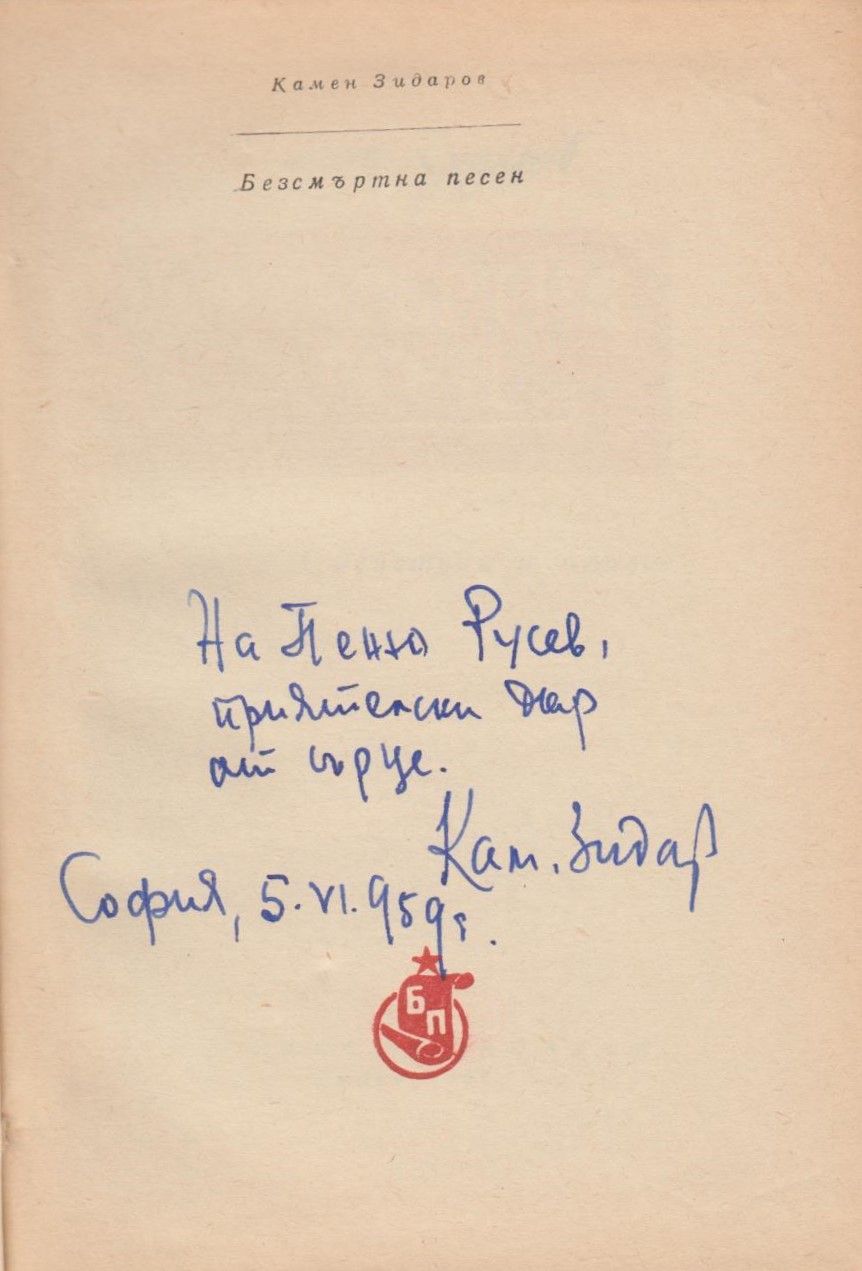 Камен Зидаров
Безсмъртна песен
На Пенчо Русев,
приятелски дар
от сърце.
Кам. Зидар
София, 5.VI.959г.
БП